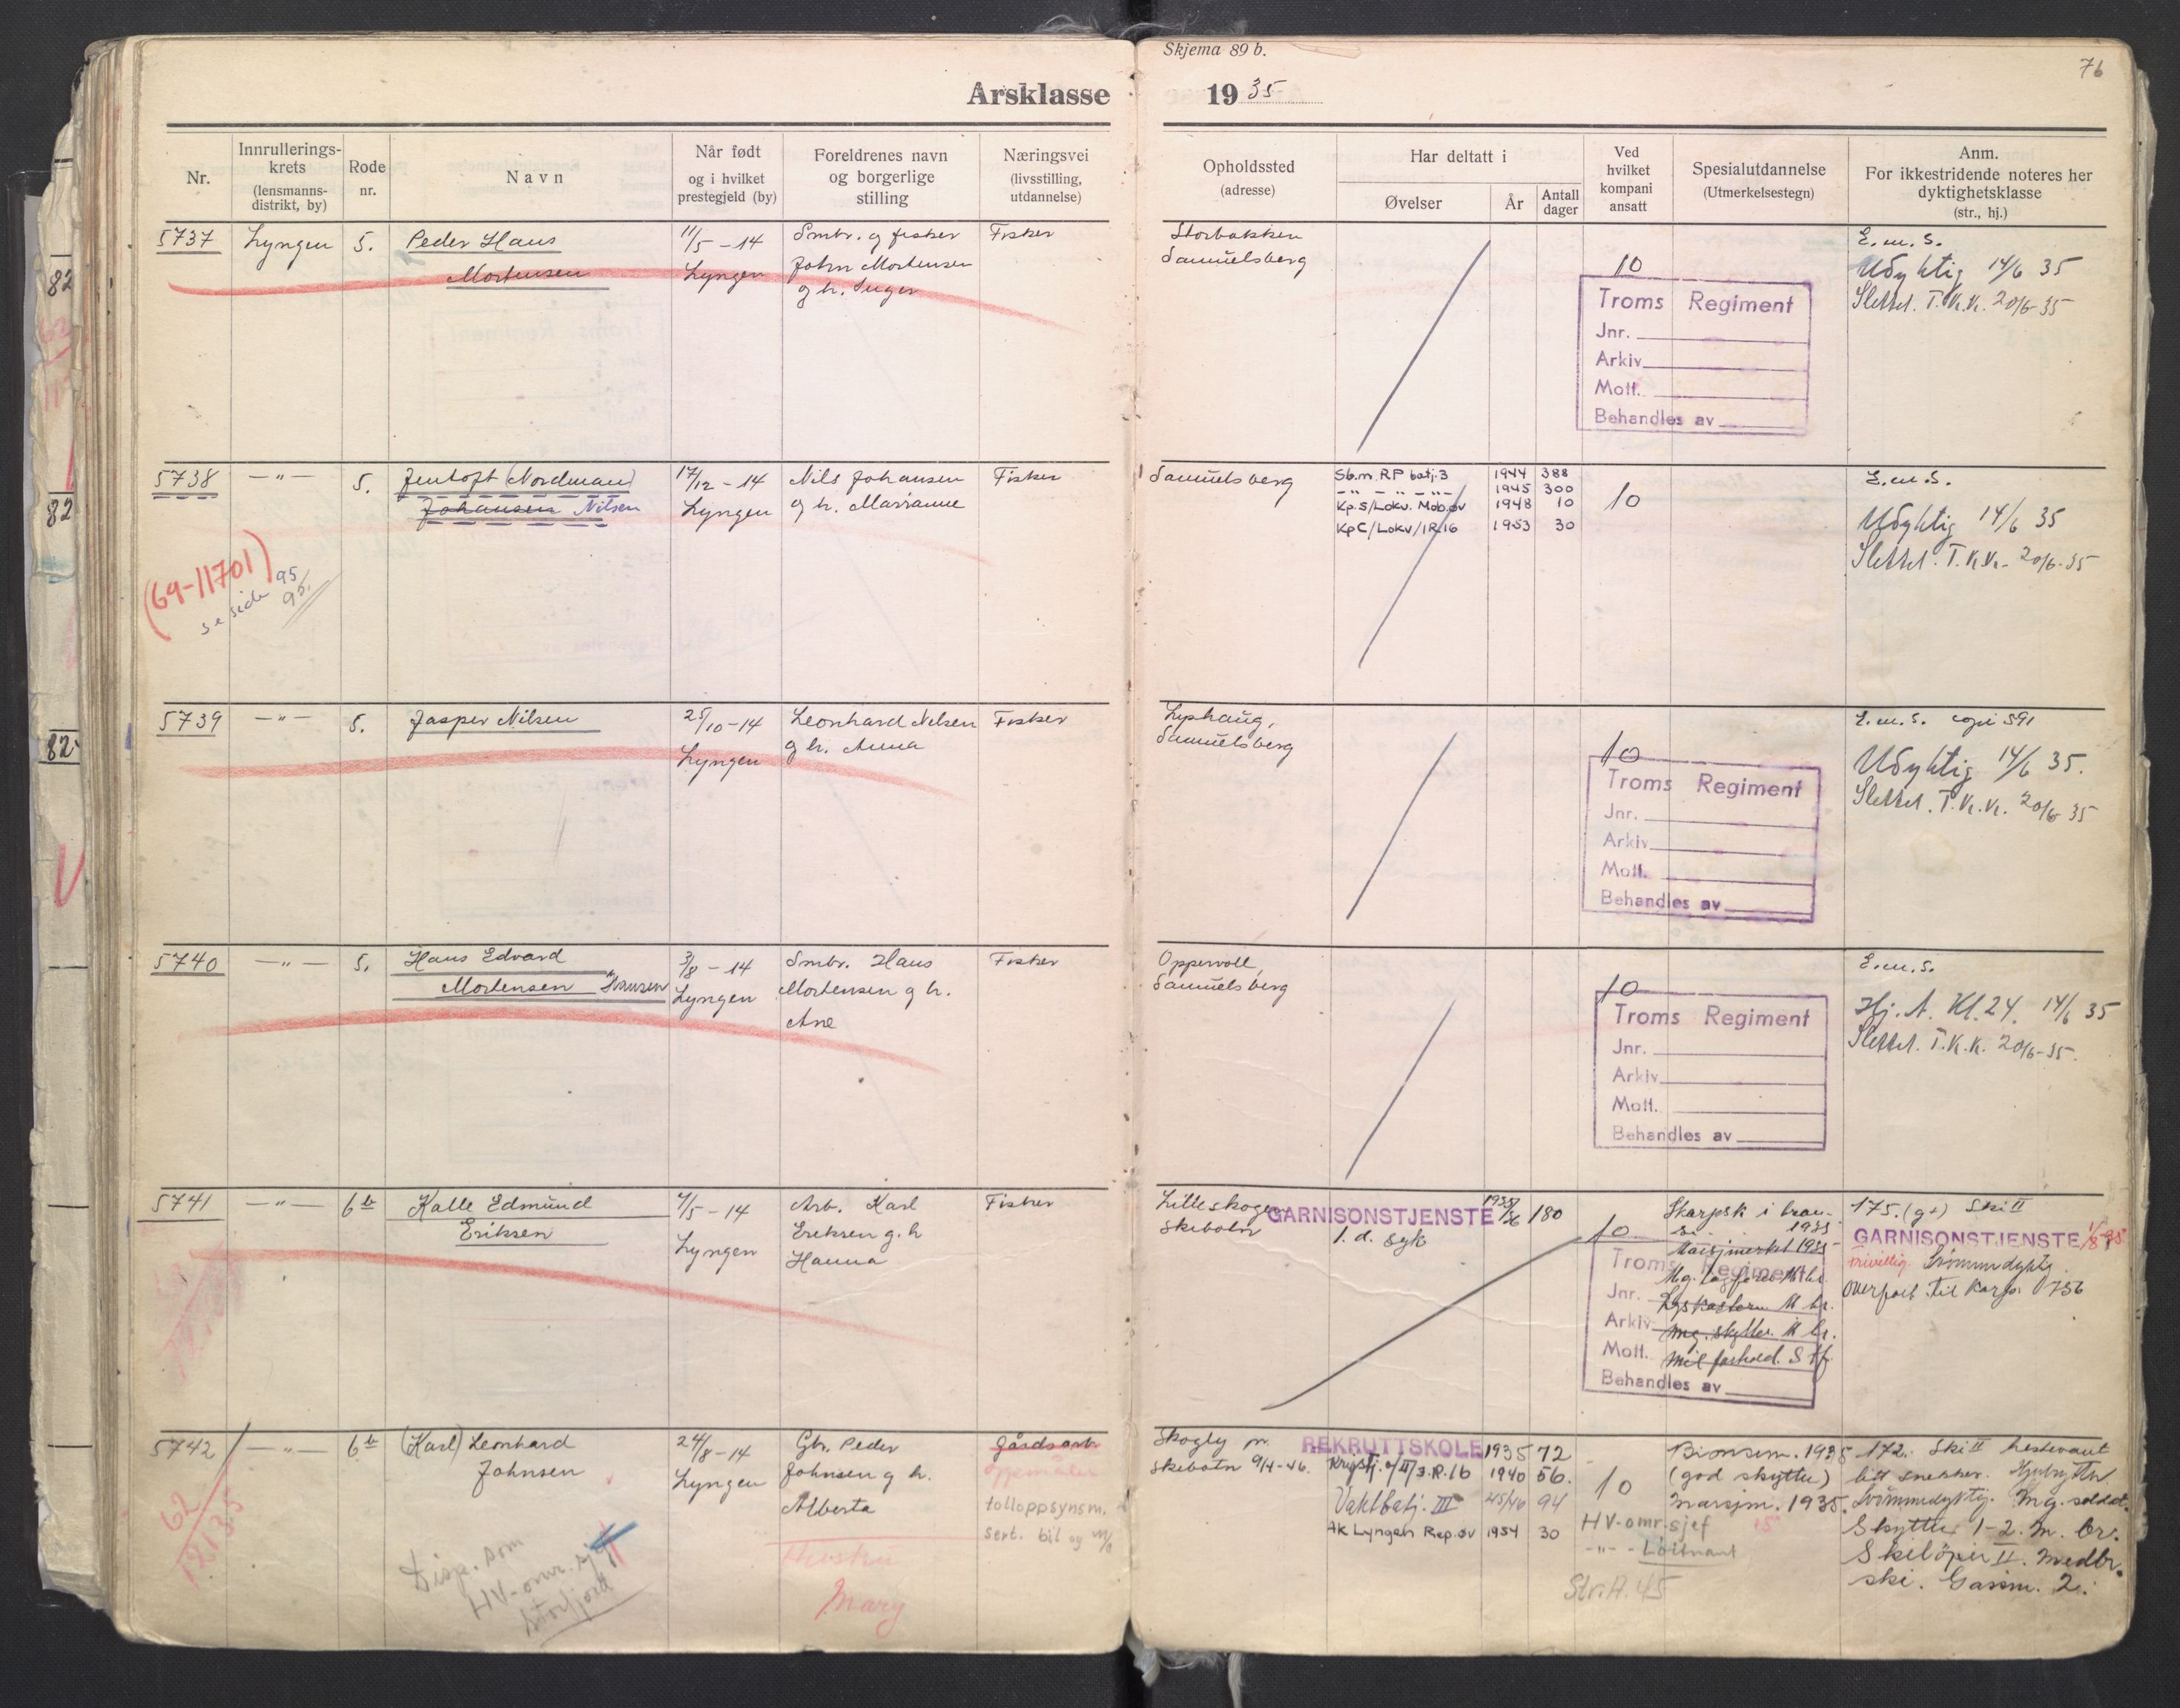 Skjema 89 b.
76
Årsklasse 1935
Nr.
Innrullerings-
krets
(lensmanns-
distrikt, by)
Rode
nr.
Navn
Når født
og i hvilket
prestegjeld (by)
Foreldrenes navn
og borgerlige
stilling
Næringsvei
(livsstilling,
utdannelse)
Opholdssted
(adresse)
Har deltatt i
Øvelser
År
Antall
dager
Ved
hvilket
kompani
ansatt
Spesialutdannelse
(Utmerkelsestegn)
Anm.
For ikkestridende noteres her
dyktighetsklasse
(str., hj.)
5737
Lyngen
5.
Peder Hans
Mortensen
11/5 - 14
Lyngen
Smbr. og fisker
John Mortensen
og h. Inger
Fisker
Storbakken
Samuelsberg
10
Troms Regiment
Jnr.
Arkiv
Mott.
Behandles av
E.m.s.
Udyktig 14/6 35
Slettet. T.Kr.K. 20/6-35
5738
-"-
5.
Jentoft (Nordman)
Johansen Nilsen
17/12 - 14
Lyngen
Nils Johansen
og h. Marianne
Fisker
(69-11701)
se side 95
95.
Samuelsberg
Sb.m. RP batj. 3 1944 388
-"- -"- -"- 1945 300
Kp.S/Lokv. Mob.øv 1948 10
KpC/Lokv/IR16 1953 30
10
E.m.s.
Udyktig 14/6 35
Slettet. T.Kr.K. 20/6-35
5739
-"-
5.
Jasper Nilsen
25/10-14
Lyngen
Leonhard Nilsen
og h. Anna
Fisker
Lyshaug,
Samuelsberg
10
Troms Regiment
Jnr.
Arkiv
Mott.
Behandles av
E.m.s. copi 591
Udyktig 14/6 35.
Slettet. T.Kr.K. 20/6 35
5740
-"-
5.
Hans Edvard
Mortensen "Hansen
3/8 - 14
Lyngen
Smbr. Hans
Mortensen og h.
Ane
Fisker
Oppervoll,
Samuelsberg
10
Troms Regiment
Jnr.
Arkiv
Mott.
Behandles av
E.m.s.
Hj. A. Kl. 24. 14/6 35
Slettet. T.K.K. 20/6-35.
5741
-"-
6b
Kalle Edmund
Eriksen
4/5 - 14
Lyngen
Arb. Karl
Eriksen og h
Hanna
Fisker
Lilleskogen
Skibotn
GARNISONSTJENSTE 1935/36 180
1. d. syk
10
Skarpsk i bron-
se. 1935
Marsjmerket 1935
Troms Regiment
Jnr.
Arkiv
Mg. skytter. M br.
Mott.
Behandles av
175. (g+) Ski II
GARNISONSTJENSTE
Frivillig. Svømmedyktig
Overført til Korps. 0756
5742
-"-
6b
(Karl) Leonhard
Johnsen
24/8-14
Lyngen
Gbr. Peder
Johnsen og h.
Alberta
Hustru
Mary
gårdsarb
tolloppsynsm.
Sert. bil og
62
12135
Disp. som
HV-omr. sjef
Storfjord
Skogly pr.
Skibotn 9/4-46.
REKRUTTSKOLE 1935 72
II/3.R.16 1940 56.
Vaktbatj. III 45/46 94
AK Lyngen Rep.øv 1954 30
10
HV-omr.sjef
-"- - Løitnant
Str.A. 45
Bronsem. 1935
(god skytter)
Marsjm. 1935.
172. Ski II hestevant
litt snekker.
Svømmedyktig. Mg. soldat.
Skytter 1-2. m. br.
Skiløper II. Medbr.
ski. Gassm. 2.
82
82
82